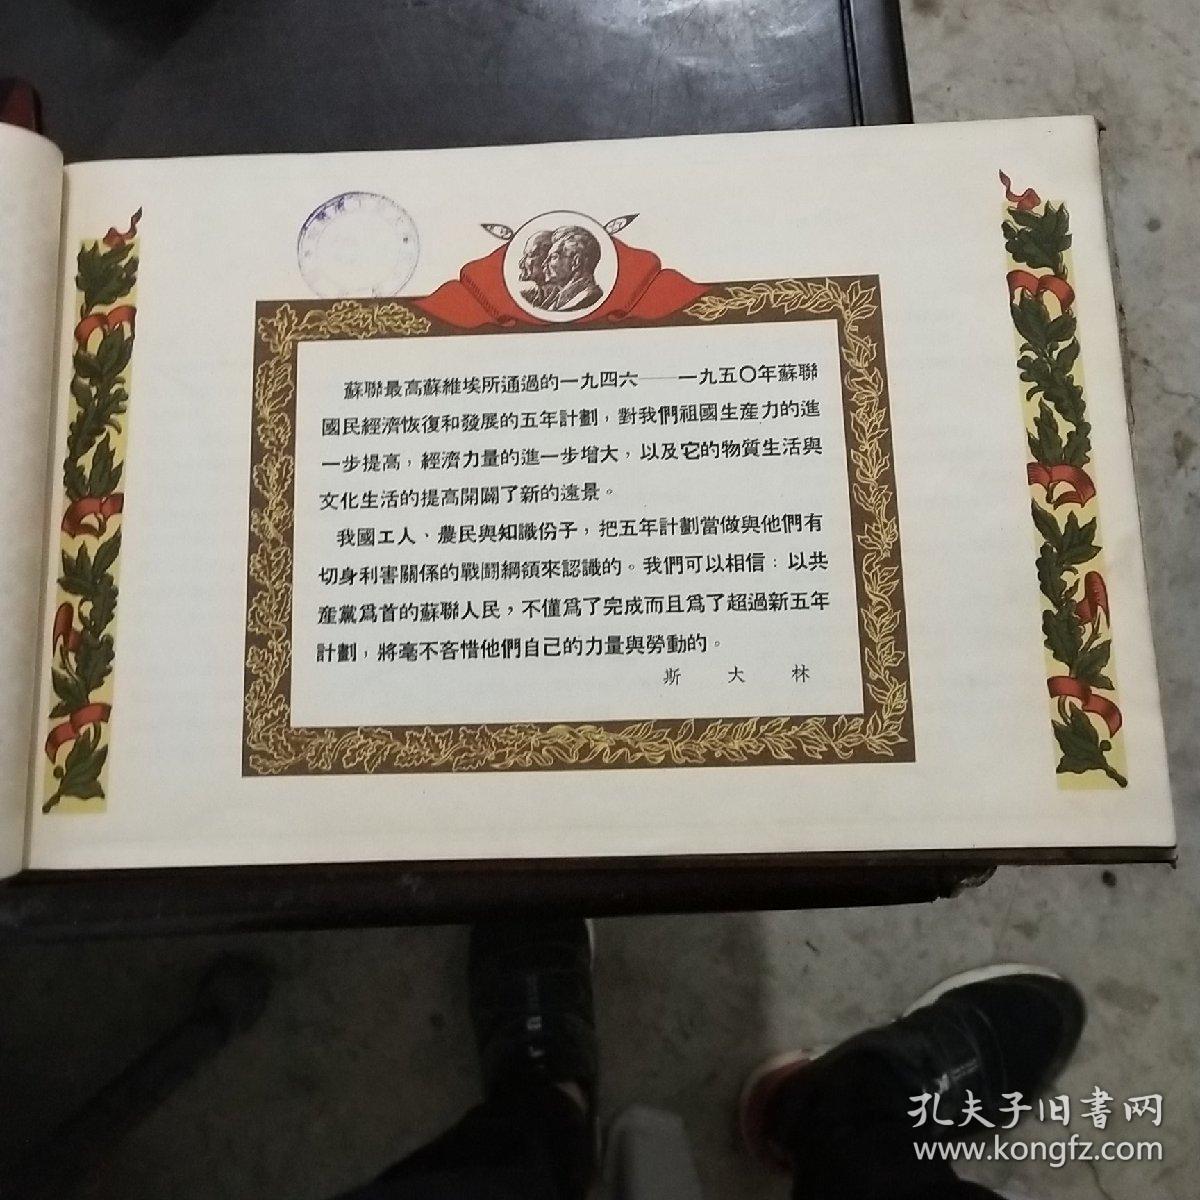 蘇聯最高蘇維埃所通過的一九四六——一九五〇年蘇聯
國民經濟恢復和發展的五年計劃，對我們祖國生產力的進
一步提高，經濟力量的進一步增大，以及它的物質生活與
文化生活的提高開闢了新的遠景。
我國工人、農民與知識份子，把五年計劃當做與他們有
切身利害關係的戰鬪綱領來認識的。我們可以相信：以共
產黨爲首的蘇聯人民，不僅爲了完成而且爲了超過新五年
計劃，將毫不吝惜他們自己的力量與勞動的。
斯 大 林
孔夫子旧書网
www.kongfz.com